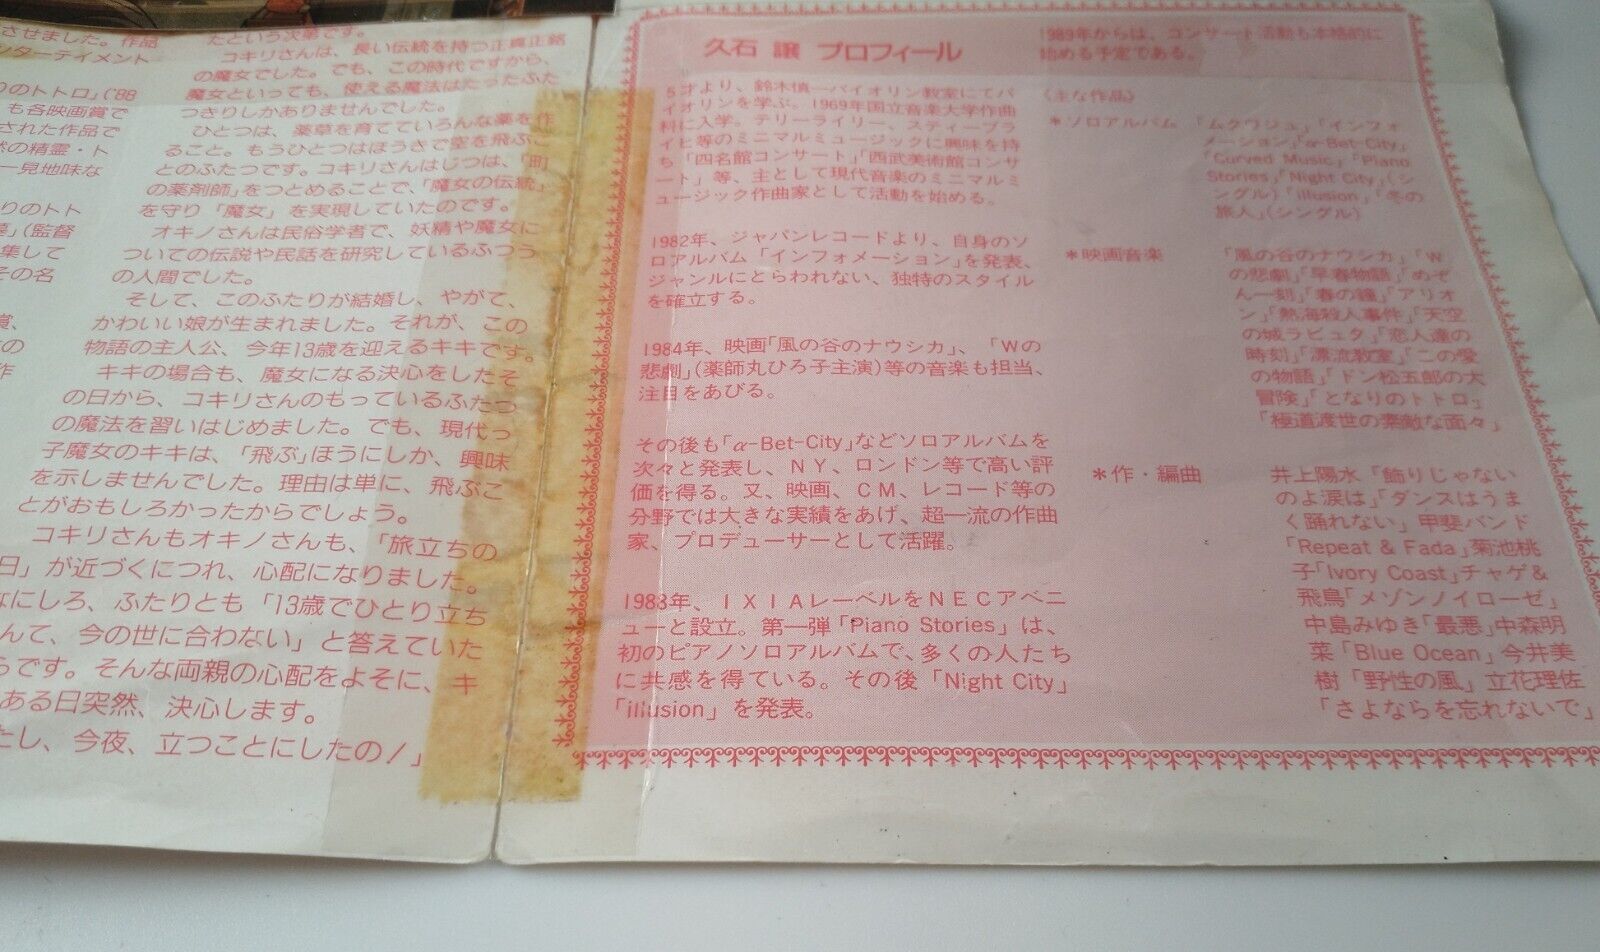 させました。作品
ンターテイメント
りのトトロ」('88
も各映画賞で
された作品で
然の精霊・ト
一見地味な
りのトト
」(監督
集して
その名
賞、
の
作
たという次第です。
コキリさんは、長い伝統を持つ正真正銘
の魔女でした。でも、この時代ですから、
魔女といっても、使える魔法はたったふた
つきりしかありませんでした。
ひとつは、薬草を育てていろんな薬を作
ること。もうひとつはほうきで空を飛ぶこ
とのふたつです。コキリさんはじつは、「町
の薬剤師」をつとめることで、「魔女の伝統」
を守り「魔女」を実現していたのです。
オキノさんは民俗学者で、妖精や魔女に
ついての伝説や民話を研究しているふつう
の人間でした。
そして、このふたりが結婚し、やがて、
かわいい娘が生まれました。それが、この
物語の主人公、今年13歳を迎えるキキです。
キキの場合も、魔女になる決心をしたそ
の日から、コキリさんのもっているふたつ
の魔法を習いはじめました。でも、現代っ
子魔女のキキは、「飛ぶ」ほうにしか、興味
を示しませんでした。理由は単に、飛ぶこ
とがおもしろかったからでしょう。
コキリさんもオキノさんも、「旅立ちの
日」が近づくにつれ、心配になりました。
なにしろ、ふたりとも「13歳でひとり立ち
んて、今の世に合わない」と答えていた
らです。そんな両親の心配をよそに、キ
ある日突然、決心します。
たし、今夜、立つことにしたの!」
久石 譲 プロフィール
5才より、鈴木慎一バイオリン教室にてバ
イオリンを学ぶ。1969年国立音楽大学作曲
科に入学。テリーライリー、スティーブラ
イヒ等のミニマルミュージックに興味を持
ち「四名館コンサート」「西武美術館コンサ
ート」等、主として現代音楽のミニマルミ
ュージック作曲家として活動を始める。
1982年、ジャパンレコードより、自身のソ
ロアルバム「インフォメーション」を発表、
ジャンルにとらわれない、独特のスタイル
を確立する。
1984年、映画「風の谷のナウシカ」、「Wの
悲劇」(薬師丸ひろ子主演)等の音楽も担当、
注目をあびる。
その後も「α-Bet-City」などソロアルバムを
次々と発表し、NY、ロンドン等で高い評
価を得る。又、映画、CM、レコード等の
分野では大きな実績をあげ、超一流の作曲
家、プロデューサーとして活躍。
1988年、IXIAレーベルをNECアベニ
ューと設立。第一弾「Piano Stories」は、
初のピアノソロアルバムで、多くの人たち
に共感を得ている。その後「Night City」
「illusion」を発表。
1989年からは、コンサート活動も本格的に
始める予定である。
〈主な作品〉
*ソロアルバム 「ムクワジュ」「インフォ
メーション」「α-Bet-City」
「Curved Music」「Piano
Stories」「Night City」(シ
ングル)「illusion」「冬の
旅人」(シングル)
*映画音楽 「風の谷のナウシカ」「W
の悲劇」「早春物語」「めぞ
ん一刻」「春の鐘」「アリオ
ン」「熱海殺人事件」「天空
の城ラピュタ」「恋人達の
時刻」「漂流教室」「この愛
の物語」「ドン松五郎の大
冒険」「となりのトトロ」
「極道渡世の素敵な面々」
*作・編曲 井上陽水「飾りじゃない
のよ涙は」「ダンスはうま
く踊れない」甲斐バンド
「Repeat & Fada」菊池桃
子「Ivory Coast」チャゲ&
飛鳥「メゾンノイローゼ」
中島みゆき「最悪」中森明
菜「Blue Ocean」今井美
樹「野性の風」立花理佐
「さよならを忘れないで」